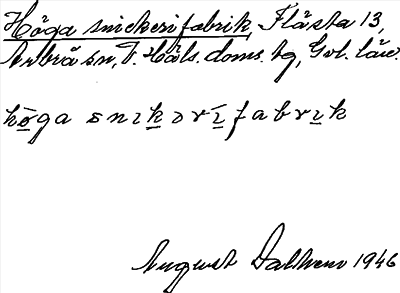 Höga snickerifabrik, Flästa 13,
Arbrå sn, V. Häls. doms. tg, Gvl. län.
höga snikərifabrik
August Dalhem 1946